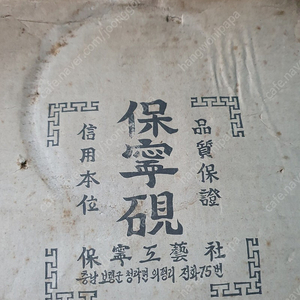 品質保證
保寧硯
信用本位
保寧工藝社
충남 보령군 청라면 의평리 전화75번